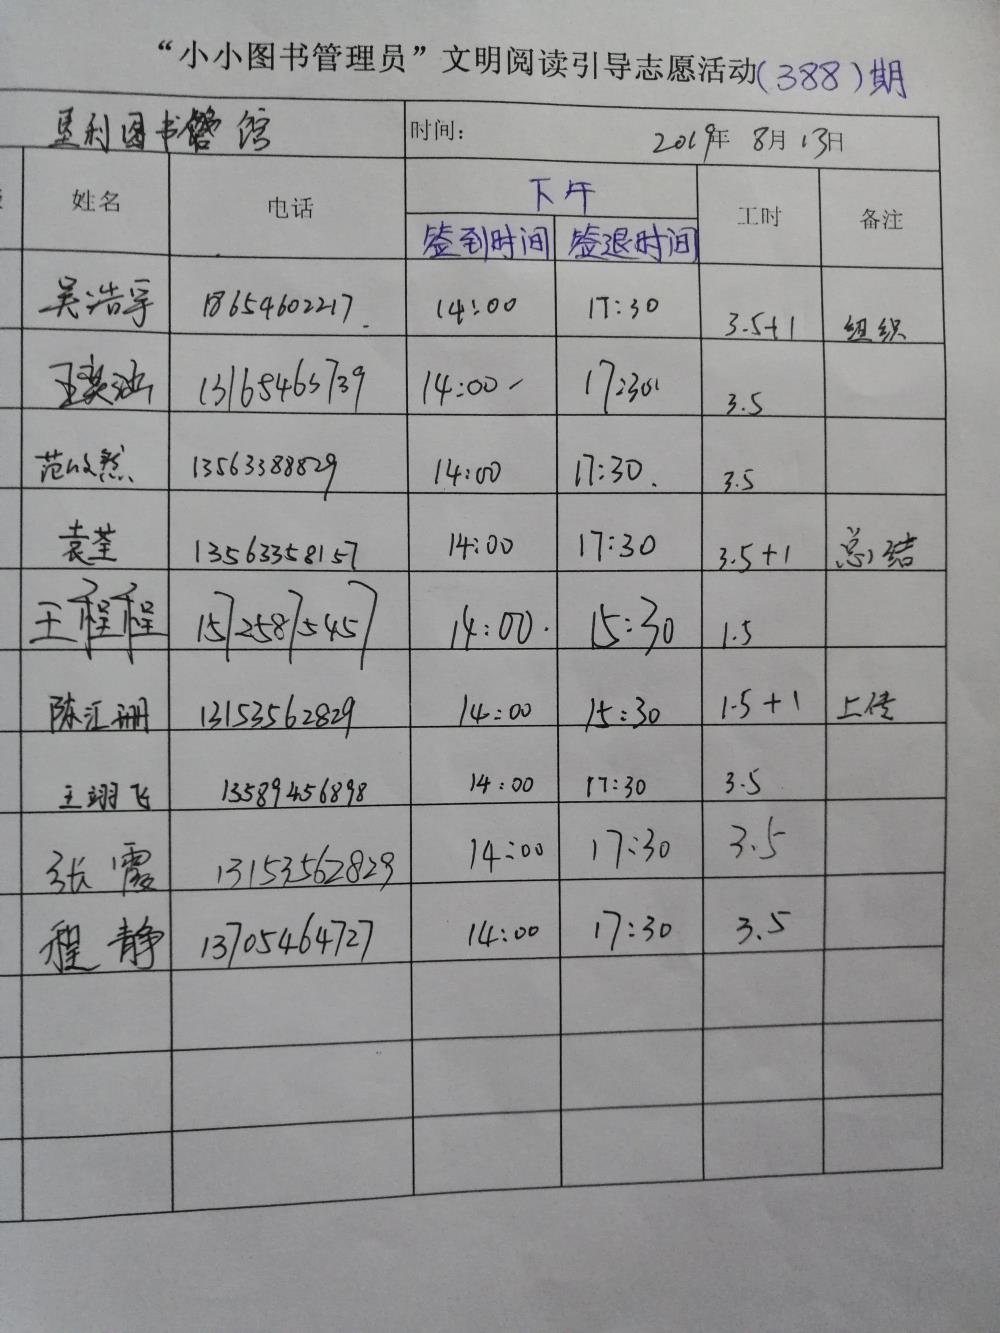 “小小图书管理员”文明阅读引导志愿活动(388)期
垦利图书馆 时间: 2019年 8月 13日
姓名 电话 下午 工时 备注
签到时间 签退时间
吴浩宇 18654602217 14:00 17:30 3.5+1 组织
王奕涵 13165463739 14:00 17:30 3.5
范攸然 13563388829 14:00 17:30 3.5
袁荃 13563358157 14:00 17:30 3.5+1 总结
王程程 15725875457 14:00 15:30 1.5
陈汇珊 13153562829 14:00 15:30 1.5+1 上传
王翊飞 13589456898 14:00 17:30 3.5
张霞 13153562829 14:00 17:30 3.5
程静 13705464727 14:00 17:30 3.5